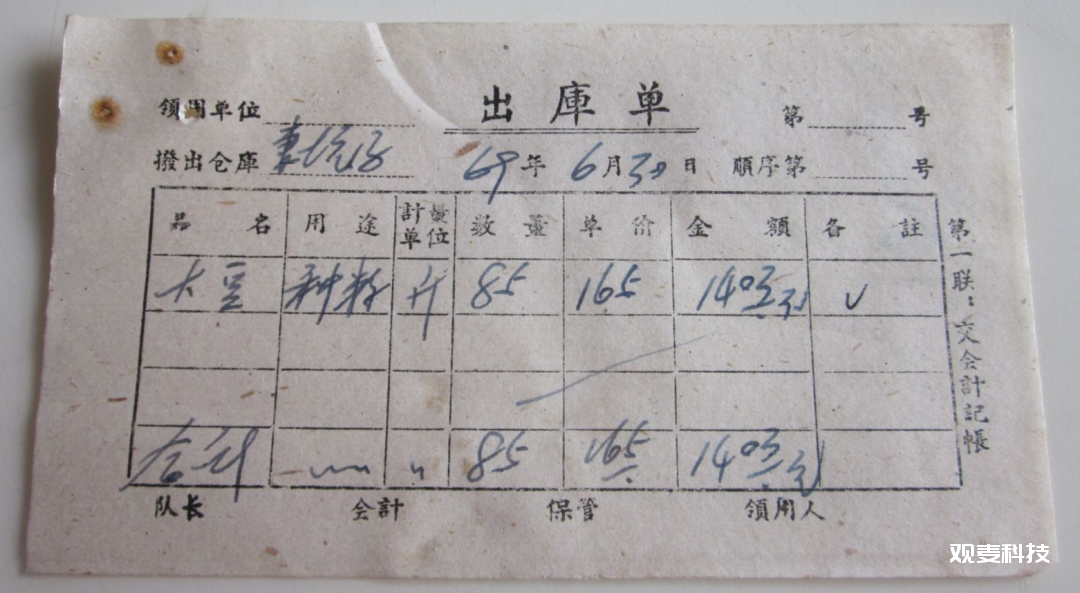 出庫单
領用单位 第 号
撥出仓庫 69年 6月30日 順序第 号
品名 用途 計量单位 数量 单价 金額 备註
大豆 种籽 斤 85 165 1403
合计 〃 85 165 1403
队长 会計 保管 領用人
第一联：交会計記帳
观麦科技